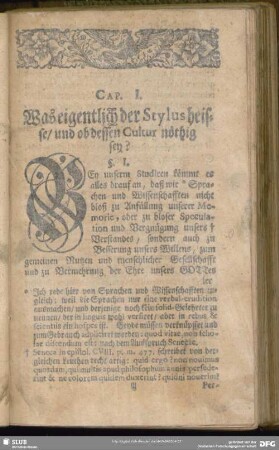 CAP. I.
Was eigentlich der Stylus heis-
se/ und ob dessen Cultur nöthig
sey?
§. I.
BEy unsern Studiren kömmt es
alles drauf an, daß wir * Spra-
chen und Wissenschafften nicht
bloß zu Anfüllung unserer Me-
morie, oder zu bloser Specula-
tion und Vergnügung unsers †
Verstandes, sondern auch zu
Besserung unsers Willens, zum
gemeinen Nutzen und menschlicher Gesellschafft
und zu Vermehrung der Ehre unsers GOttes
* Ich rede hier von Sprachen und Wissenschafften zu-
gleich; weil die Sprachen nur eine verbal-erudition
ausmachen, und derjenige noch kein solid-Gelehrter zu
nennen, der in linguis wohl versiret, aber in rebus &
scientiis ein hospes ist. Beyde müssen verknüpfft und
zum Gebrauch adhibiret werden: quod vitae, non scho-
lae discendum est: nach dem Ausspruch Senecae.
† Seneca in epistol. CVIII. p. m. 477. schreibet von der-
gleichen Leuthen recht artig: quid ergo? non novimus
quosdam, qui multis apud philosophum annis persede-
rint & ne colorem quidem duxerint? quidni noverim?
Per-